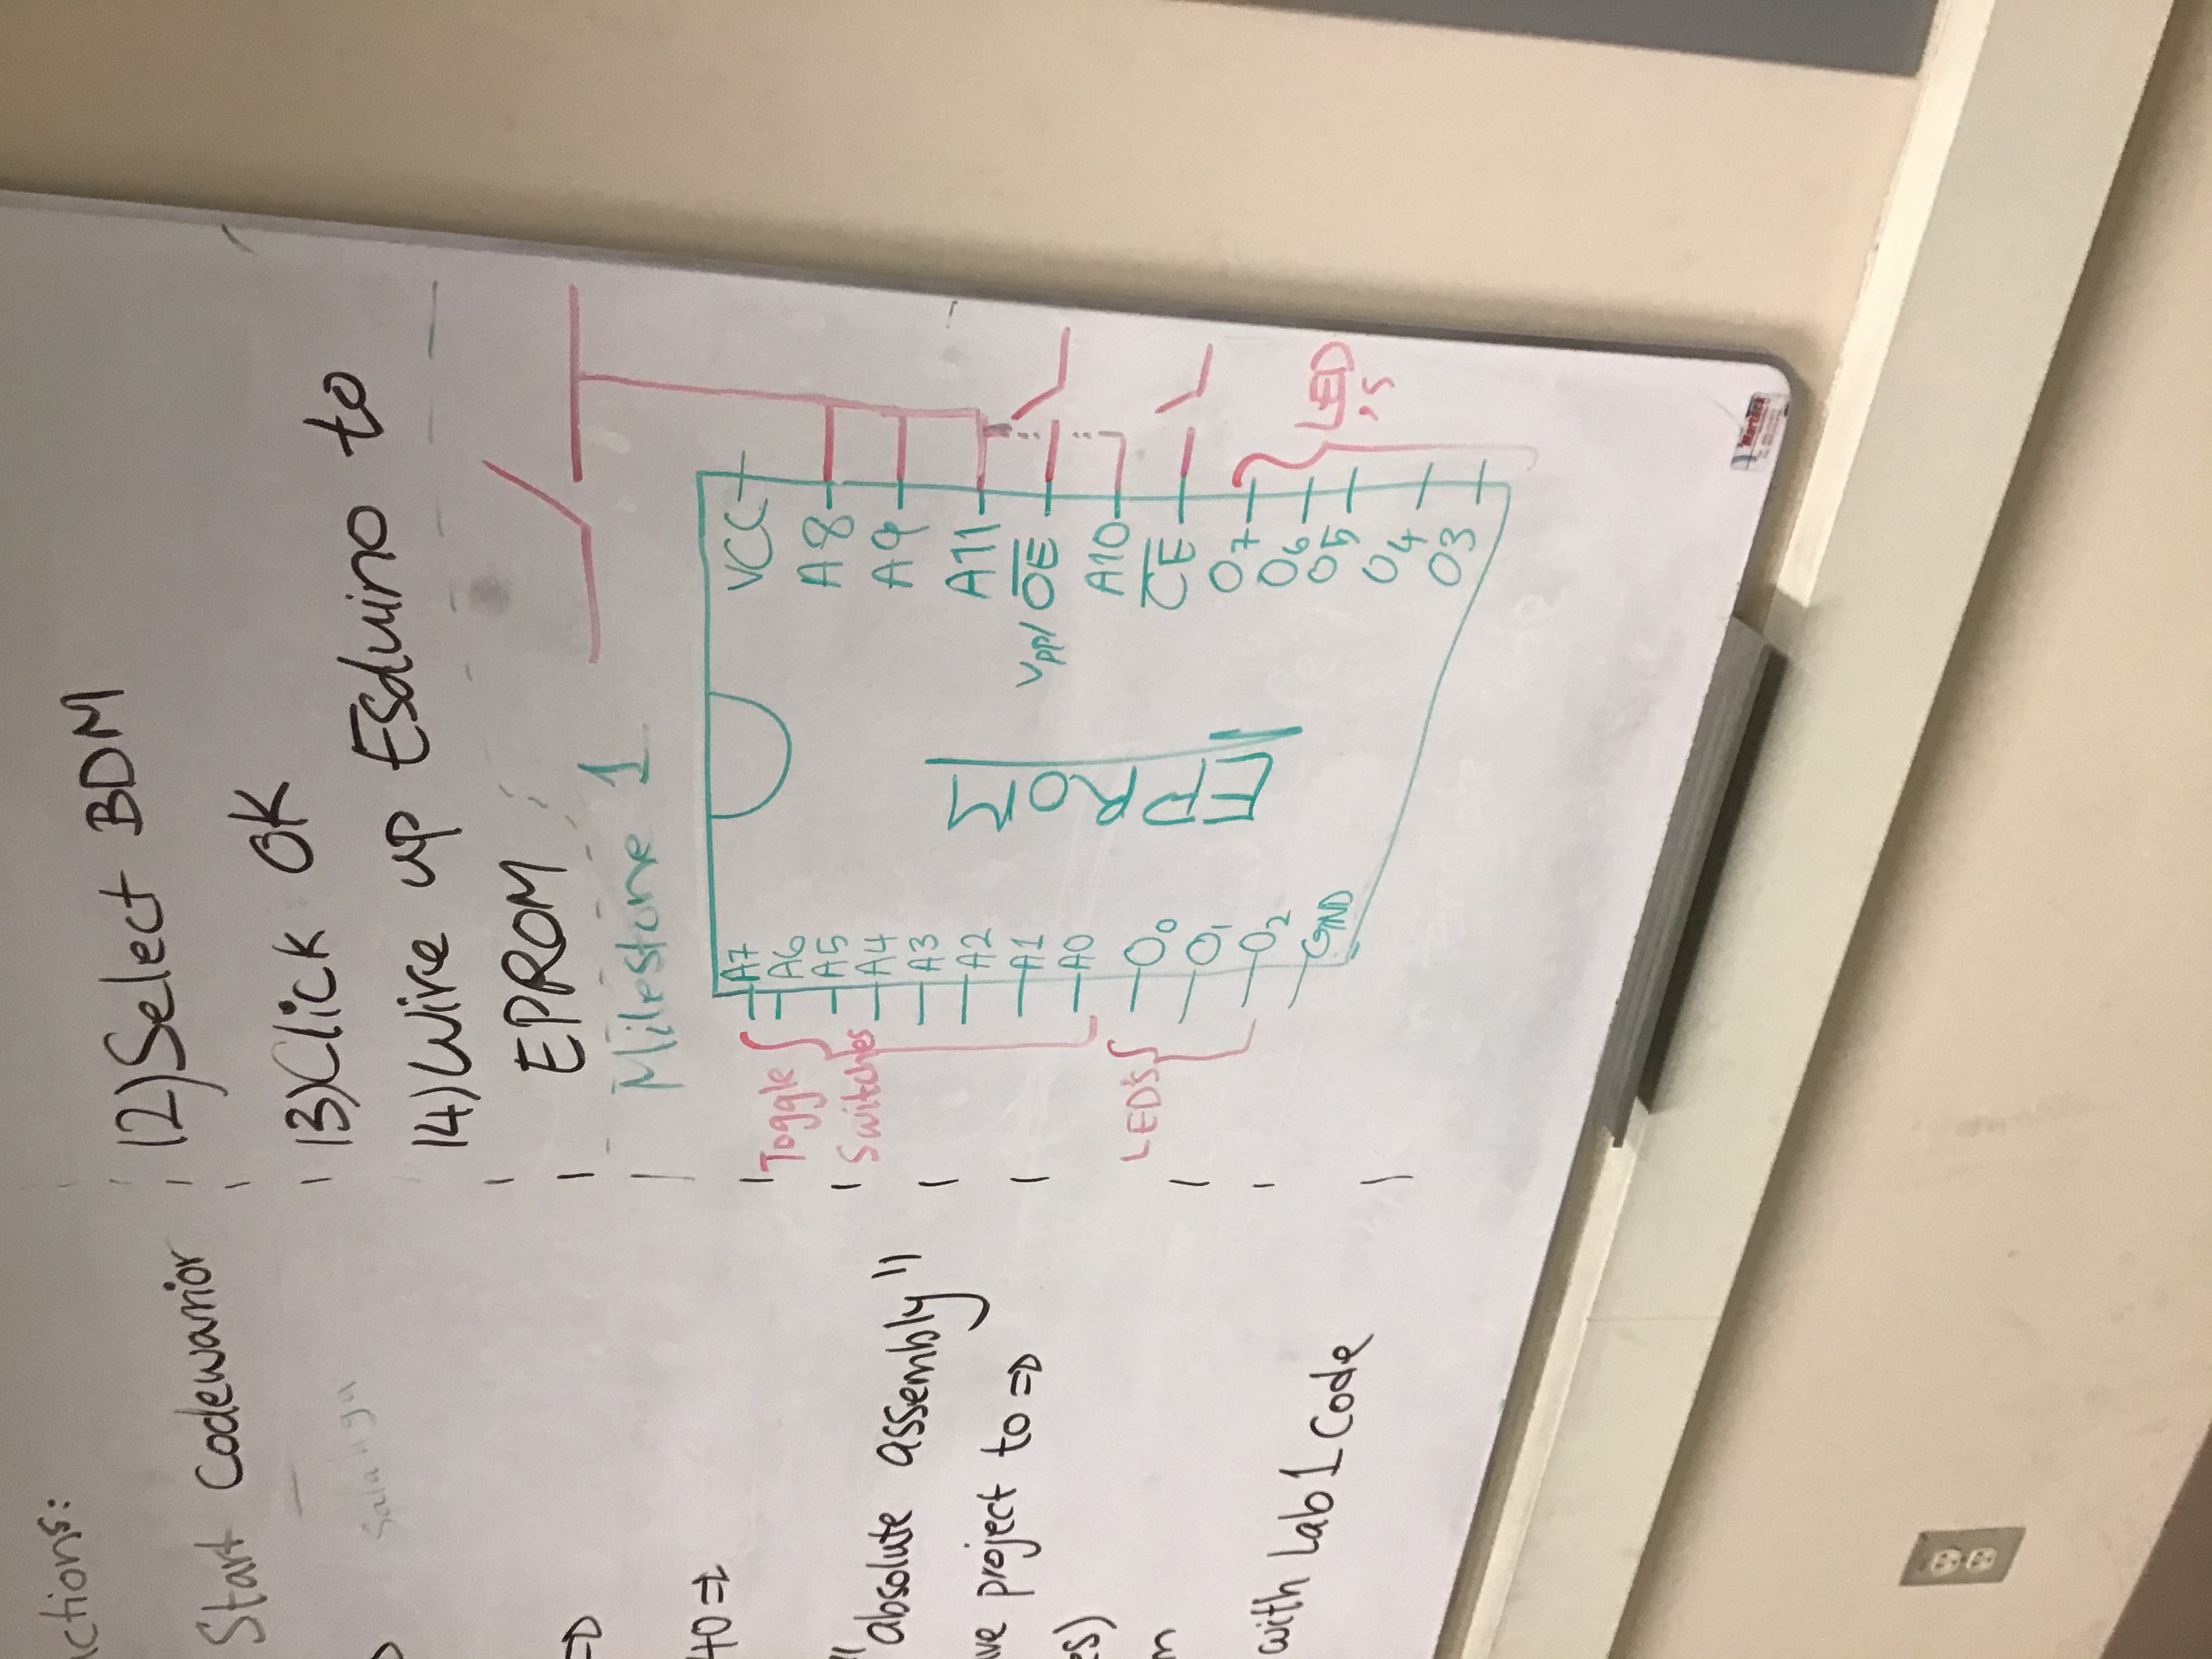 ctions:
Start Codewarrior
40 =>
"absolute assembly"
ve project to =>
es)
with Lab 1 Code
12) Select BDM
13) Click OK
14) Wire up Esduino to
EPROM
Milestone 1
Toggle
Switches
LED'S
A7
A6
A5
A4
A3
A2
A1
A0
O0
O1
O2
GND
EPROM
VCC
A8
A9
A11
Vpp/ OE
A10
CE
O7
O6
O5
O4
O3
LED
's